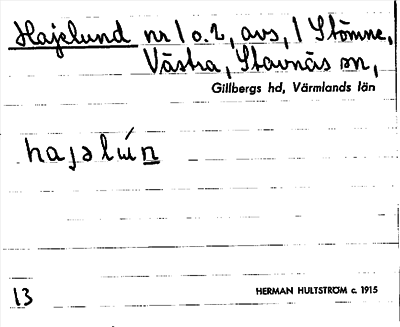 Hajelund nr 1 o. 2, avs, 1 Stömne,
Västra, Stavnäs sn,
Gillbergs hd, Värmlands län
hajəlɯ́n
13
HERMAN HULTSTRÖM c. 1915